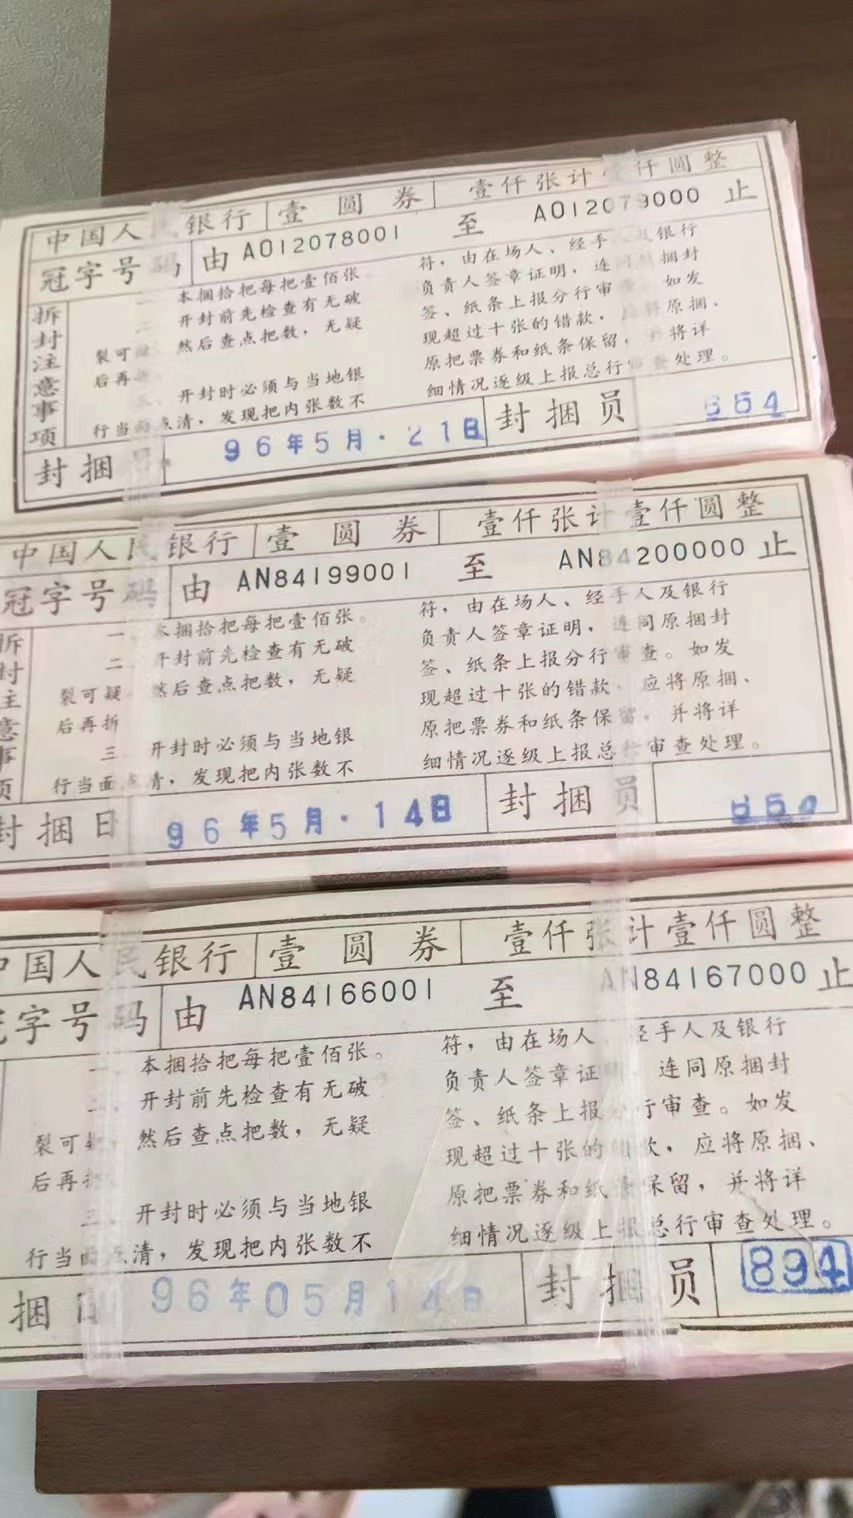 中国人民银行 壹圆券 壹仟张计壹仟圆整
冠字号码 由 AO12078001 至 AO12079000 止
拆封注意事项
本捆拾把每把壹佰张。
开封前先检查有无破
裂可 然后查点把数，无疑
后再
三、开封时必须与当地银
行当 点清，发现把内张数不
符，由在场人、经手人及银行
负责人签章证明，连同原捆封
签、纸条上报分行审 如发
现超过十张的错款，应将原捆、
原把票券和纸条保留，并将详
细情况逐级上报总行审查处理。
封捆 96年5月·21日 封捆员 654
中国人民银行 壹圆券 壹仟张计壹仟圆整
冠字号码 由 AN84199001 至 AN84200000 止
拆封注意事项
一、本捆拾把每把壹佰张。
二、开封前先检查有无破
裂可疑 然后查点把数，无疑
后再拆
三、开封时必须与当地银
行当面点清，发现把内张数不
符，由在场人、经手人及银行
负责人签章证明，连同原捆封
签、纸条上报分行审查。如发
现超过十张的错款，应将原捆、
原把票券和纸条保留，并将详
细情况逐级上报总行审查处理。
封捆日 96年5月·14日 封捆员
中国人民银行 壹圆券 壹仟张计壹仟圆整
冠字号码 由 AN84166001 至 AN84167000 止
一、本捆拾把每把壹佰张。
二、开封前先检查有无破
裂可疑，然后查点把数，无疑
后再拆
三、开封时必须与当地银
行当面点清，发现把内张数不
符，由在场人、经手人及银行
负责人签章证明，连同原捆封
签、纸条上报分行审查。如发
现超过十张的错款，应将原捆、
原把票券和纸条保留，并将详
细情况逐级上报总行审查处理。
捆日 96年05月14日 封捆员 894